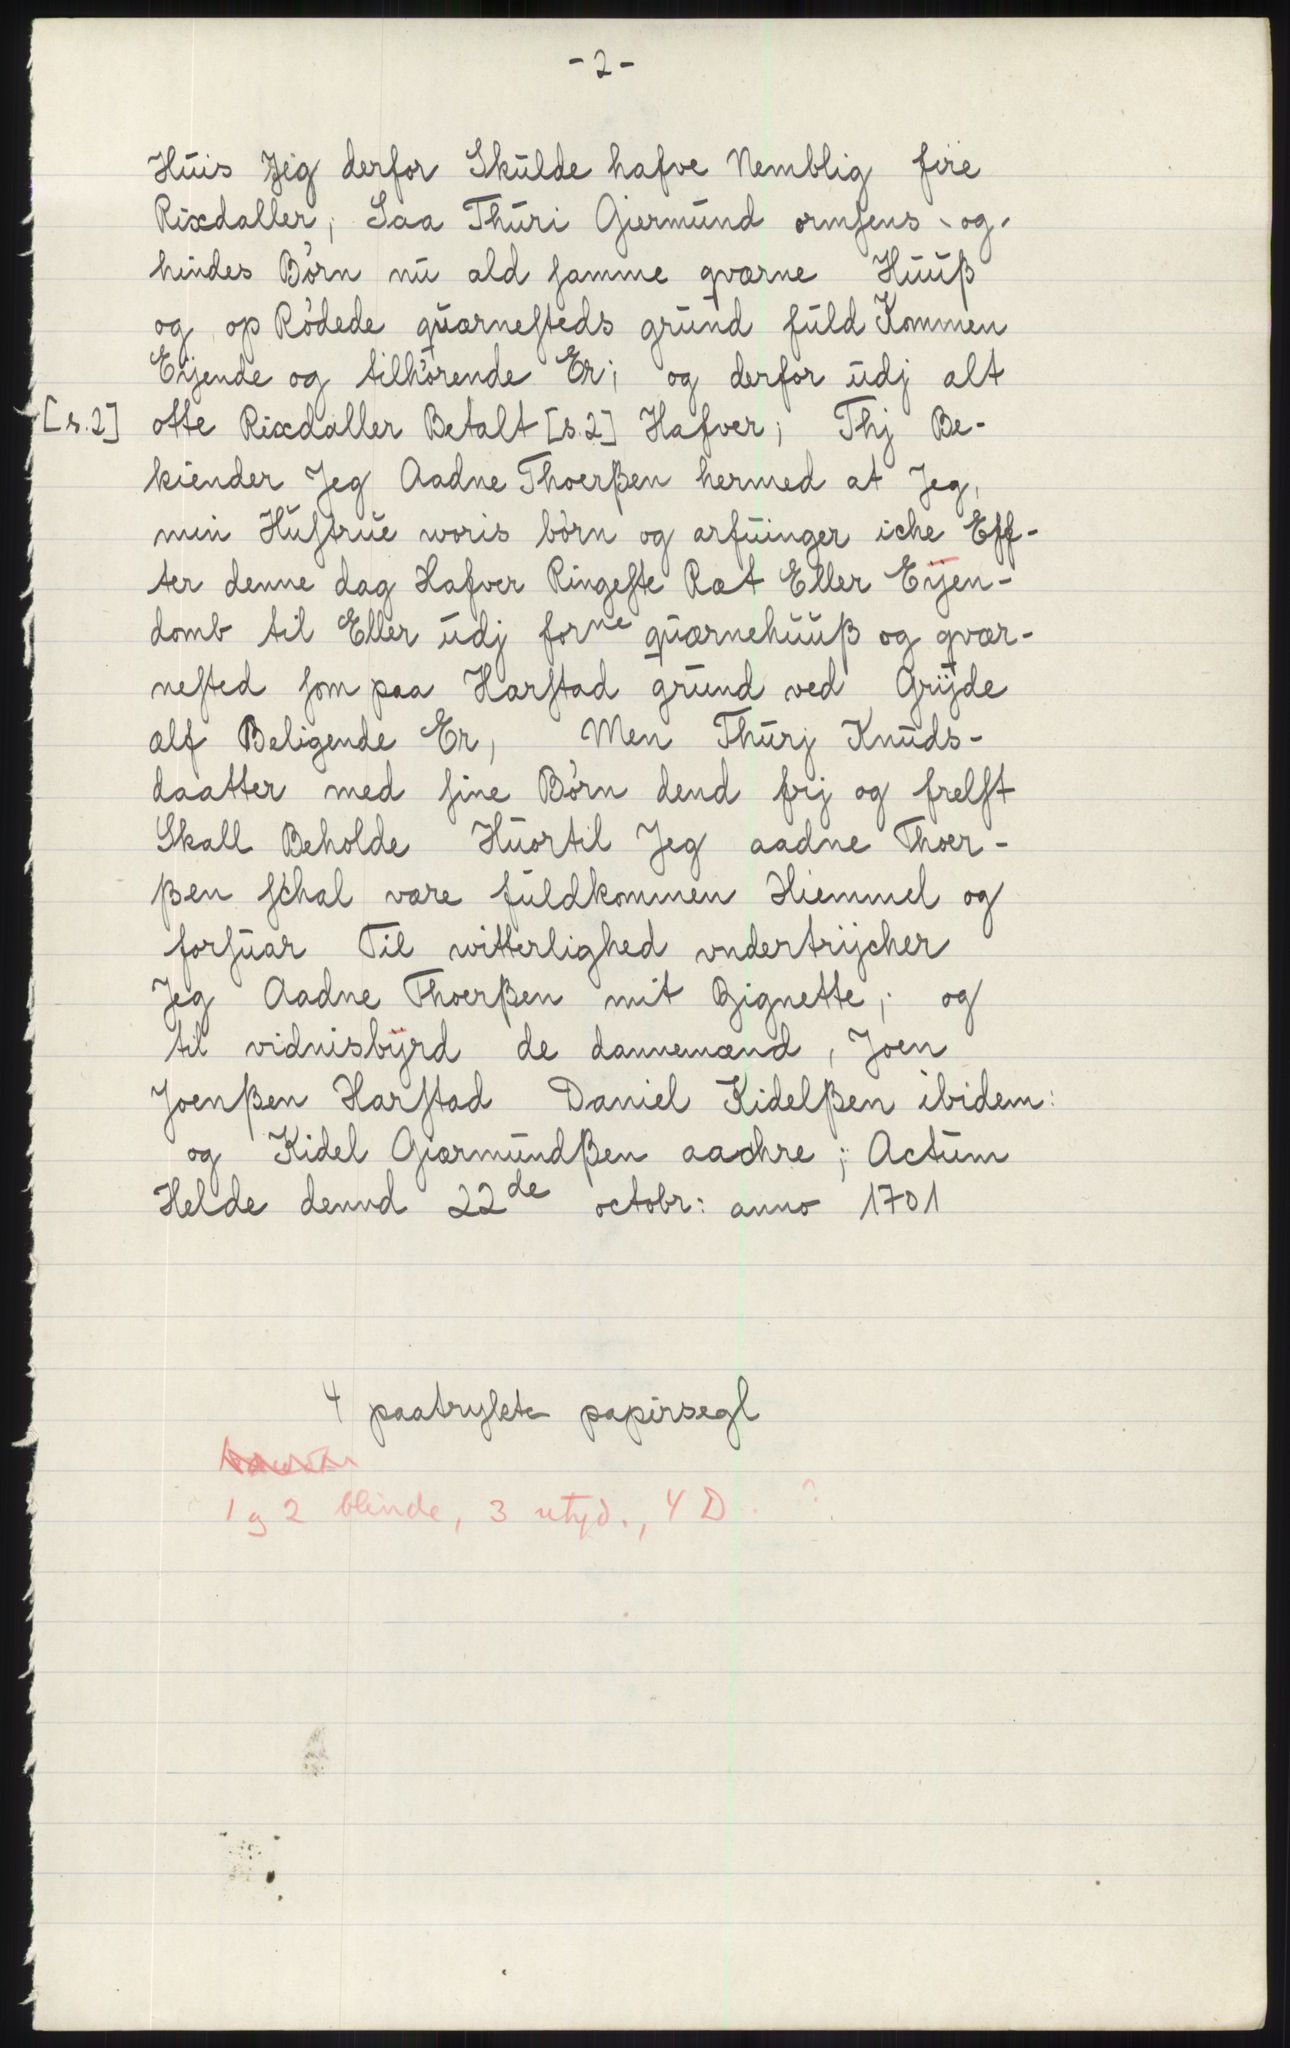 - 2 -
Huis Jeg derfor Skulde hafve Nemblig fire
Rixdaller, Saa Thuri Giermund ormsens og
hindes Børn nu ald samme qværne Huuß
og op Rødede quærnesteds grund fuld Kommen
Eijende og tilhørende Er; og derfor udj alt
[s.2] otte Rixdaller Betalt [s.2] Hafver; Thj Be-
kiender Jeg Aadne Thoerßen hermed at Jeg,
min Hustrue woris børn og arfuinger iche Eff-
ter denne dag Hafver Ringeste Ræt Eller Eijen-
domb til Eller udj forne quærnehuuß og qvær-
nested som paa Harstad grund ved Grijde
alf Beligende Er, Men Thurj Knuds-
daatter med sine Børn dend frj og frelst
Skall Beholde Huortil Jeg aadne Thoer-
ßen schal være fuldkommen Hiemmel og
forsuar Til witterlighed vndertrijcher
Jeg Aadne Thoerßen mit Zignette; og
til vidnisbÿrd de dannemænd, Joen
Joenßen Harstad Daniel Kidelßen ibidem:
og Kidel Giærmundßen aachre; Actum
Helde dennd 22de octobr: anno 1701
4 paatrykte papirsegl
1 g 2 blinde, 3 utyd., 4 D. ?